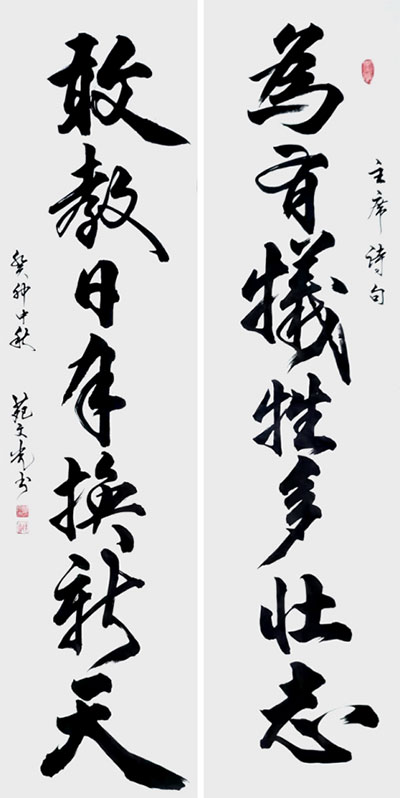 主席詩句
為有犧牲多壯志
敢教日月換新天
癸卯中秋
文光书